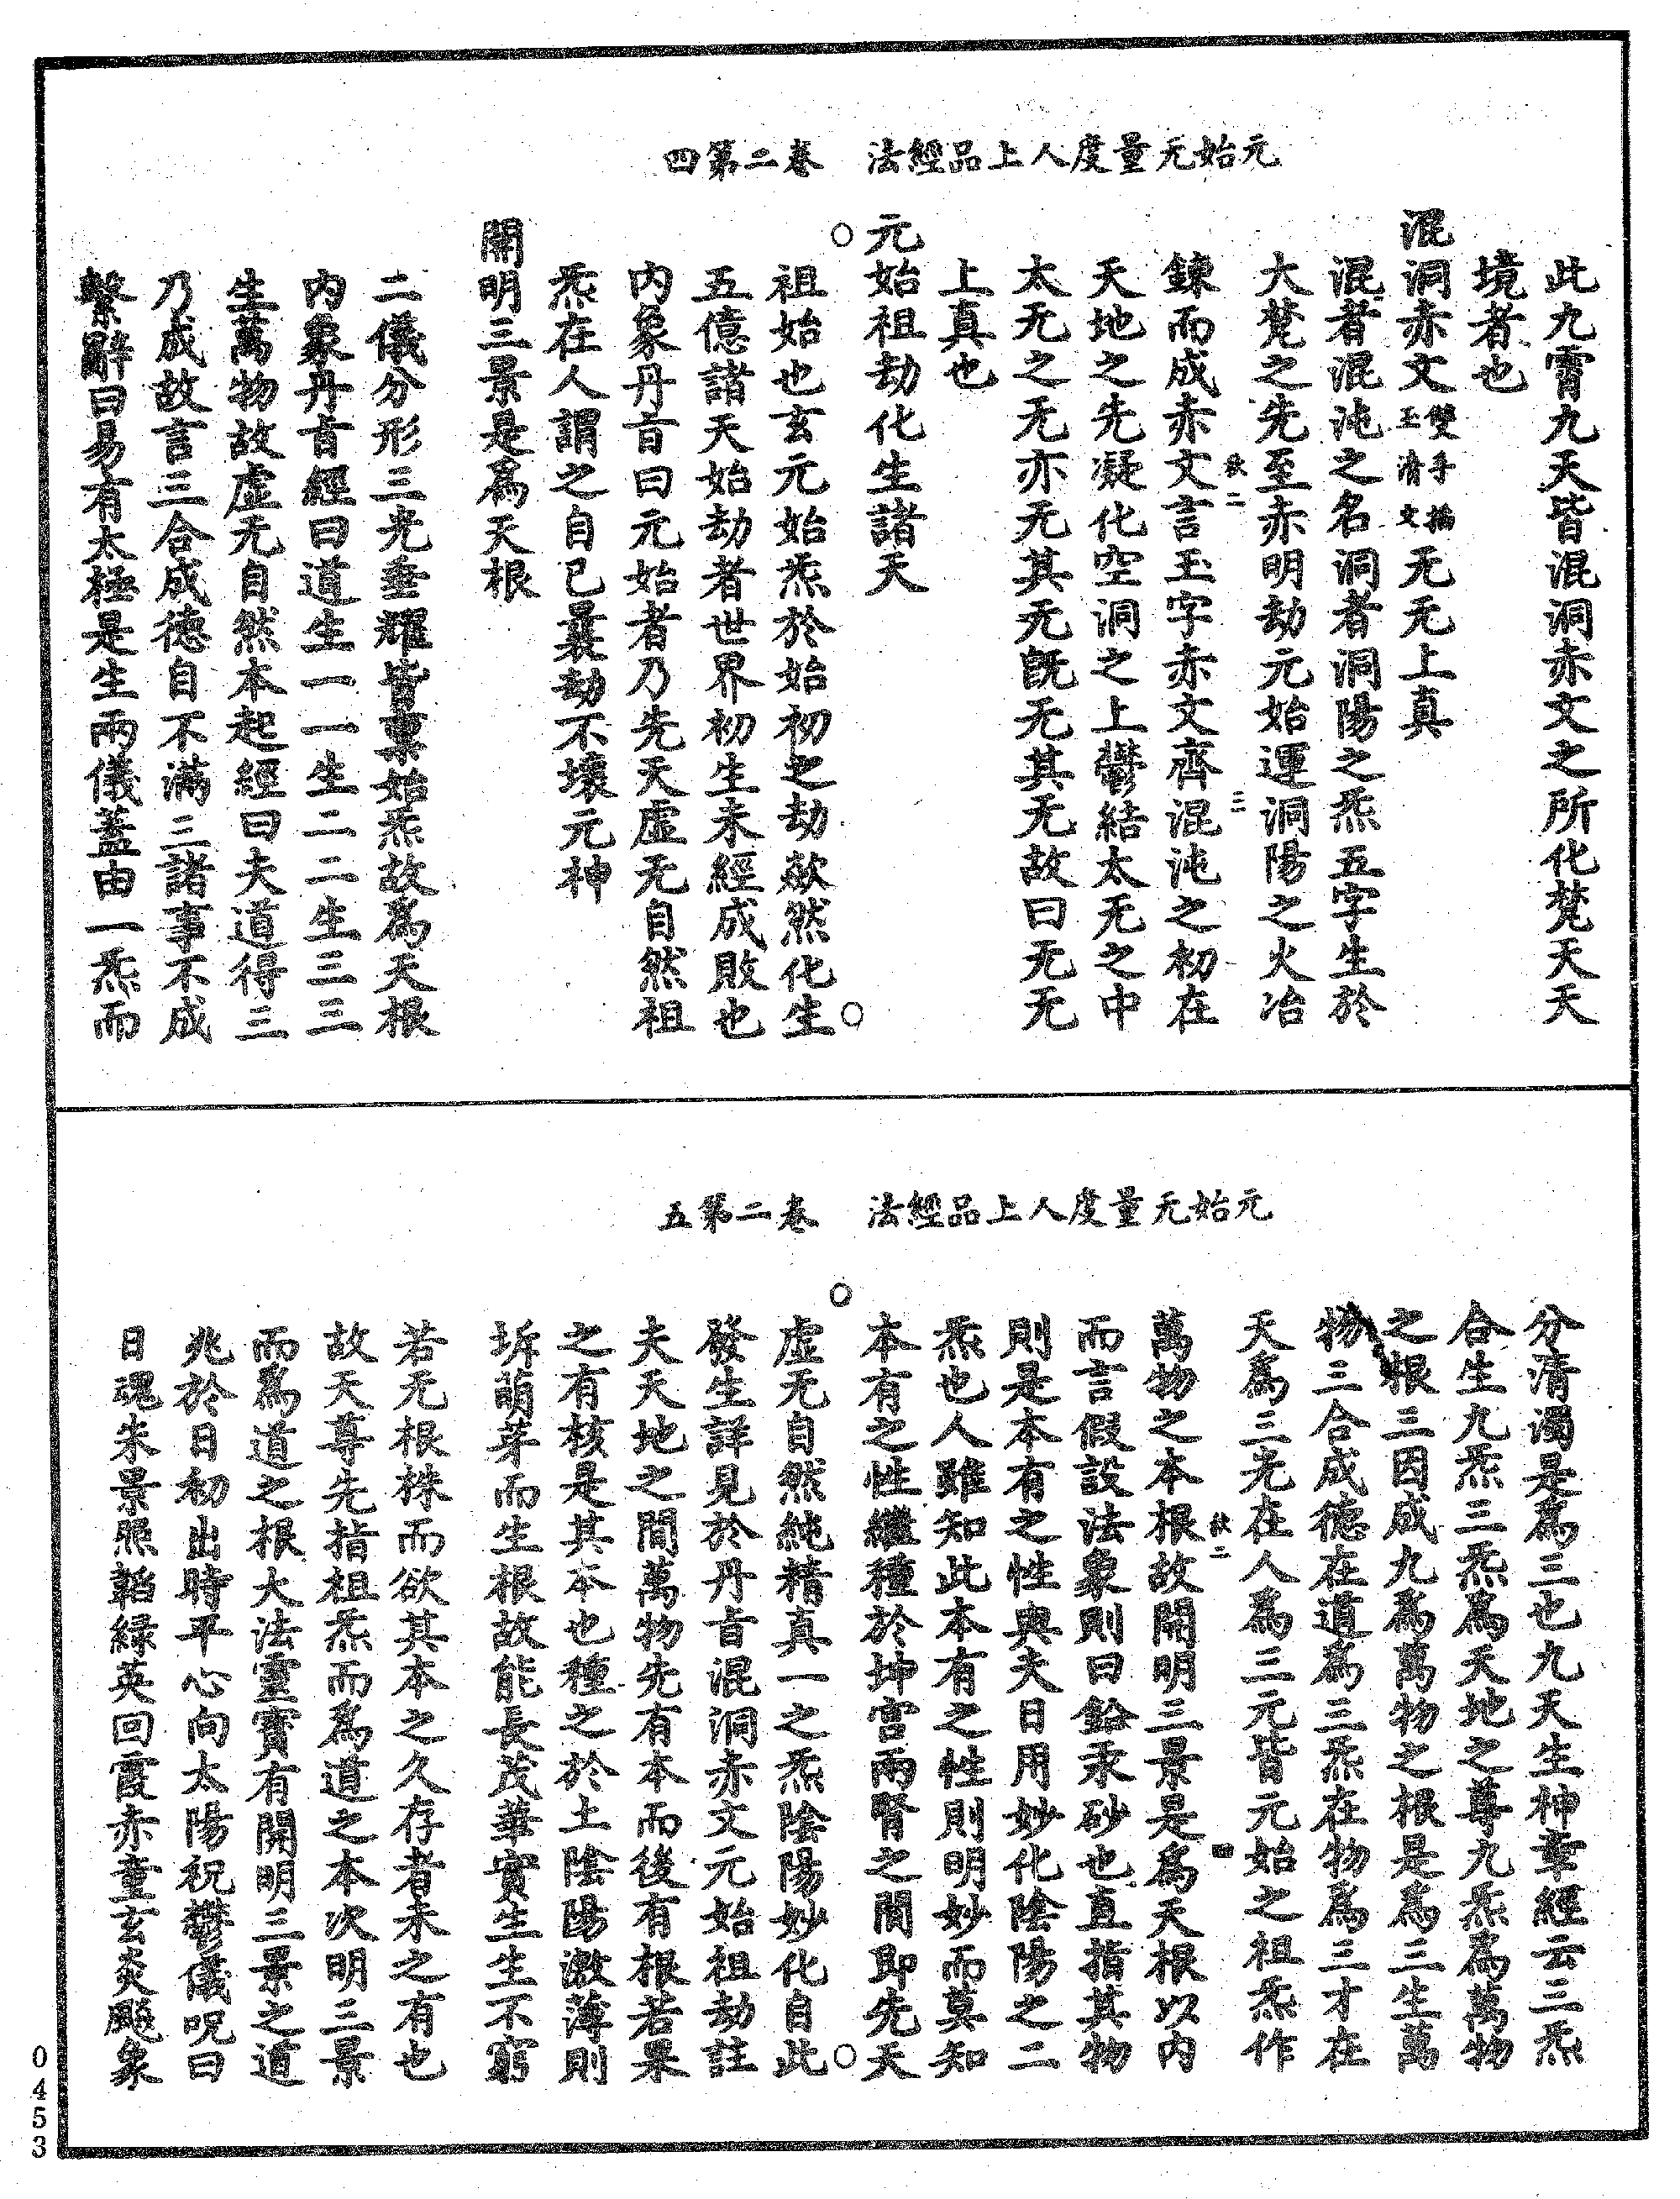 元始无量度人上品經法　卷二第四
此九霄九天皆混洞赤文之所化梵天天
境者也
混洞赤文雙手搯玉清文无无上真
混者混沌之名洞者洞陽之炁五字生於
大梵之先至赤明劫元始運洞陽之火冶
鍊而成赤文言玉字赤文齊混沌之初在
天地之先凝化空洞之上鬱結太无之中
太无之无亦无其无既无其无故曰无无
上真也
元始祖劫化生諸天
祖始也玄元始炁於始初之劫歘然化生
五億諸天始劫者世界初生未經成敗也
內象丹旨曰元始者乃先天虛无自然祖
炁在人謂之自己曩劫不壞元神
開明三景是為天根
二儀分形三光垂耀皆稟始炁故為天根
內象丹旨經曰道生一一生二二生三三
生萬物故虛无自然本起經曰夫道得三
乃成故言三合成德自不滿三諸事不成
繫辭曰易有太極是生兩儀蓋由一炁而
元始无量度人上品經法　卷二第五
分清濁是為三也九天生神章經云三炁
合生九炁三炁為天地之尊九炁為萬物
之根三因成九為萬物之根是為三生萬
物三合成德在道為三炁在物為三才在
天為三无在人為三元皆元始之祖炁作
萬物之本根故開明三景是為天根以內
而言假設法象則曰鉛汞砂也直指其物
則是本有之性與夫日用妙化陰陽之二
炁也人雖知此本有之性則明妙而莫知
本有之性繼種於坤宮兩腎之間即先天
虛无自然純精真一之炁陰陽妙化自此
發生詳見於丹旨混洞赤文元始祖劫註
夫天地之間萬物先有本而後有根若果
之有核是其本也種之於土陰陽激薄則
坼萌芽而生根故能長茂華實生生不窮
若无根株而欲其本之久存者未之有也
故天尊先指祖炁而為道之本次明三景
而為道之根大法靈寶有開明三景之道
兆於日初出時平心向太陽祝鬱儀呪曰
日魂朱景照韜綠英回霞赤童玄炎飈象
0453